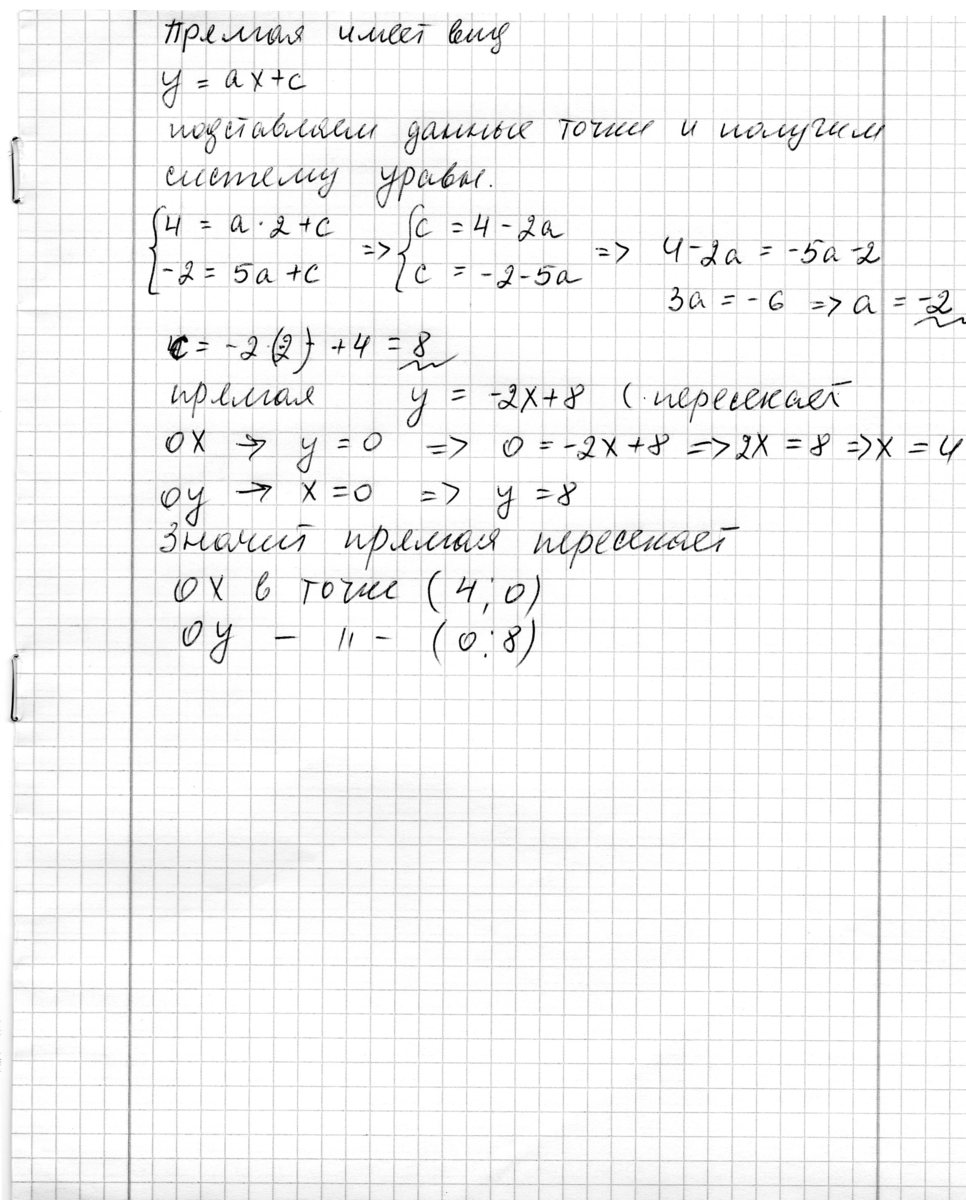 Прямая имеет вид
y = ax+c
подставляем данные точки и получим
систему уравн.
{4 = a·2+c => {c = 4-2a => 4-2a = -5a-2
{-2 = 5a+c {c = -2-5a 3a = -6 => a = -2
c = -2·(-2) +4 = 8
прямая y = -2x+8 (пересекает
OX → y = 0 => 0 = -2x+8 => 2x = 8 => x = 4
OY → x = 0 => y = 8
Значит прямая пересекает
OX в точке (4; 0)
OY - " - (0; 8)